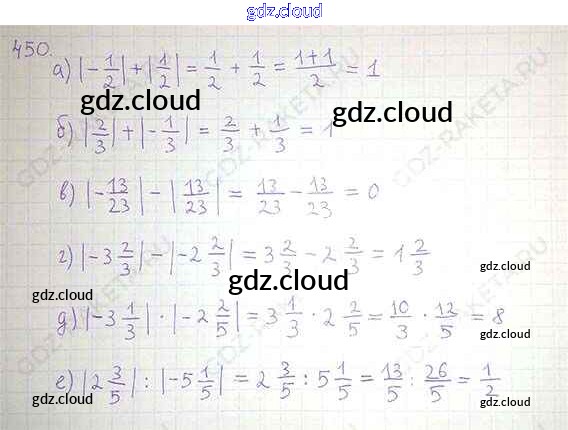 gdz.cloud
450.
а) |-1/2| + |1/2| = 1/2 + 1/2 = (1+1)/2 = 1
gdz.cloud
gdz.cloud
б) |2/3| + |-1/3| = 2/3 + 1/3 = 1
в) |-13/23| - |13/23| = 13/23 - 13/23 = 0
г) |-3 2/3| - |-2 2/3| = 3 2/3 - 2 2/3 = 1 2/3
gdz.cloud
gdz.cloud
gdz.cloud
д) |-3 1/3| · |-2 2/5| = 3 1/3 · 2 2/5 = 10/3 · 12/5 = 8
е) |2 3/5| : |-5 1/5| = 2 3/5 : 5 1/5 = 13/5 : 26/5 = 1/2
gdz.cloud
gdz.cloud
gdz.cloud
GDZ-RAKETA.RU